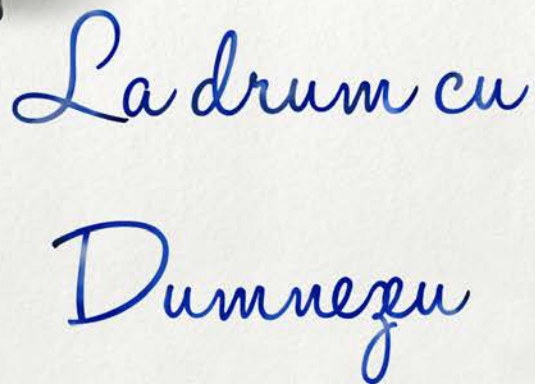 La drum cu
Dumnezeu